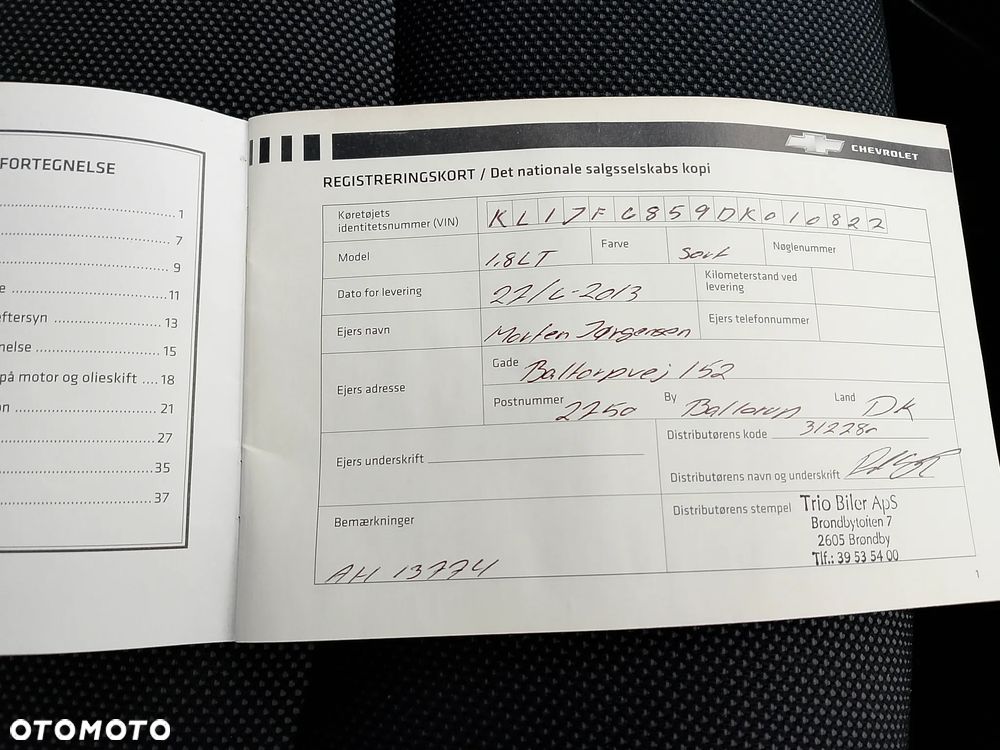 FORTEGNELSE
1
7
9
e 11
eftersyn 13
nelse 15
på motor og olieskift .... 18
n 21
27
35
37
CHEVROLET
REGISTRERINGSKORT / Det nationale salgsselskabs kopi
Køretøjets
identitetsnummer (VIN) KL1JFG859DK010822
Model 1,8 LT Farve Sort Nøglenummer
Dato for levering 27/6-2013 Kilometerstand ved
levering
Ejers navn Morten Jørgensen Ejers telefonnummer
Ejers adresse
Gade Baltorpvej 152
Postnummer 2750 By Ballerup Land DK
Ejers underskrift
Distributørens kode
Distributørens navn og underskrift
Bemærkninger
AH 13774
Distributørens stempel Trio Biler ApS
Brøndbytoften 7
2605 Brøndby
Tlf.: 39 53 54 00
1
OTOMOTO